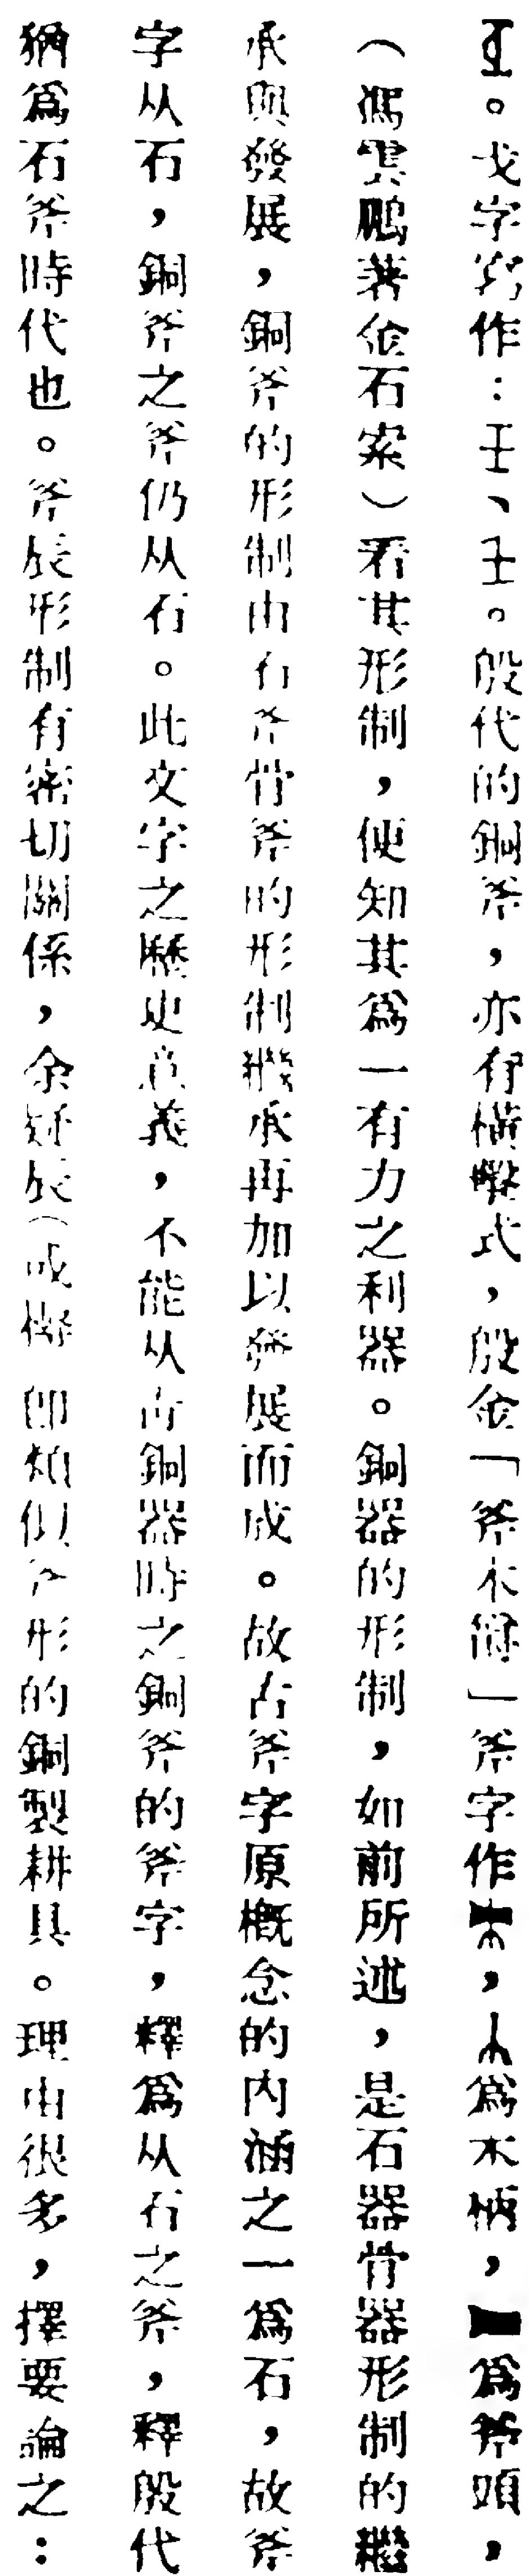 。戈字寫作：𢦏、。殷代的銅斧，亦有橫鑿式，殷金「斧木」斧字作，為木柄，為斧頭，
（馮雲鵬著金石索）看其形制，便知其爲一有力之利器。銅器的形制，如前所述，是石器骨器形制的繼
承與發展，銅斧的形制由石斧骨斧的形制繼承再加以發展而成。故古斧字原概念的内涵之一爲石，故斧
字从石，銅斧之斧仍从石。此文字之歷史意義，不能从古銅器時之銅斧的斧字，釋爲从石之斧，釋殷代
猶爲石斧時代也。斧辰形制有密切關係，余疑辰（或槈即類似斧形的銅製耕具。理由很多，擇要論之：